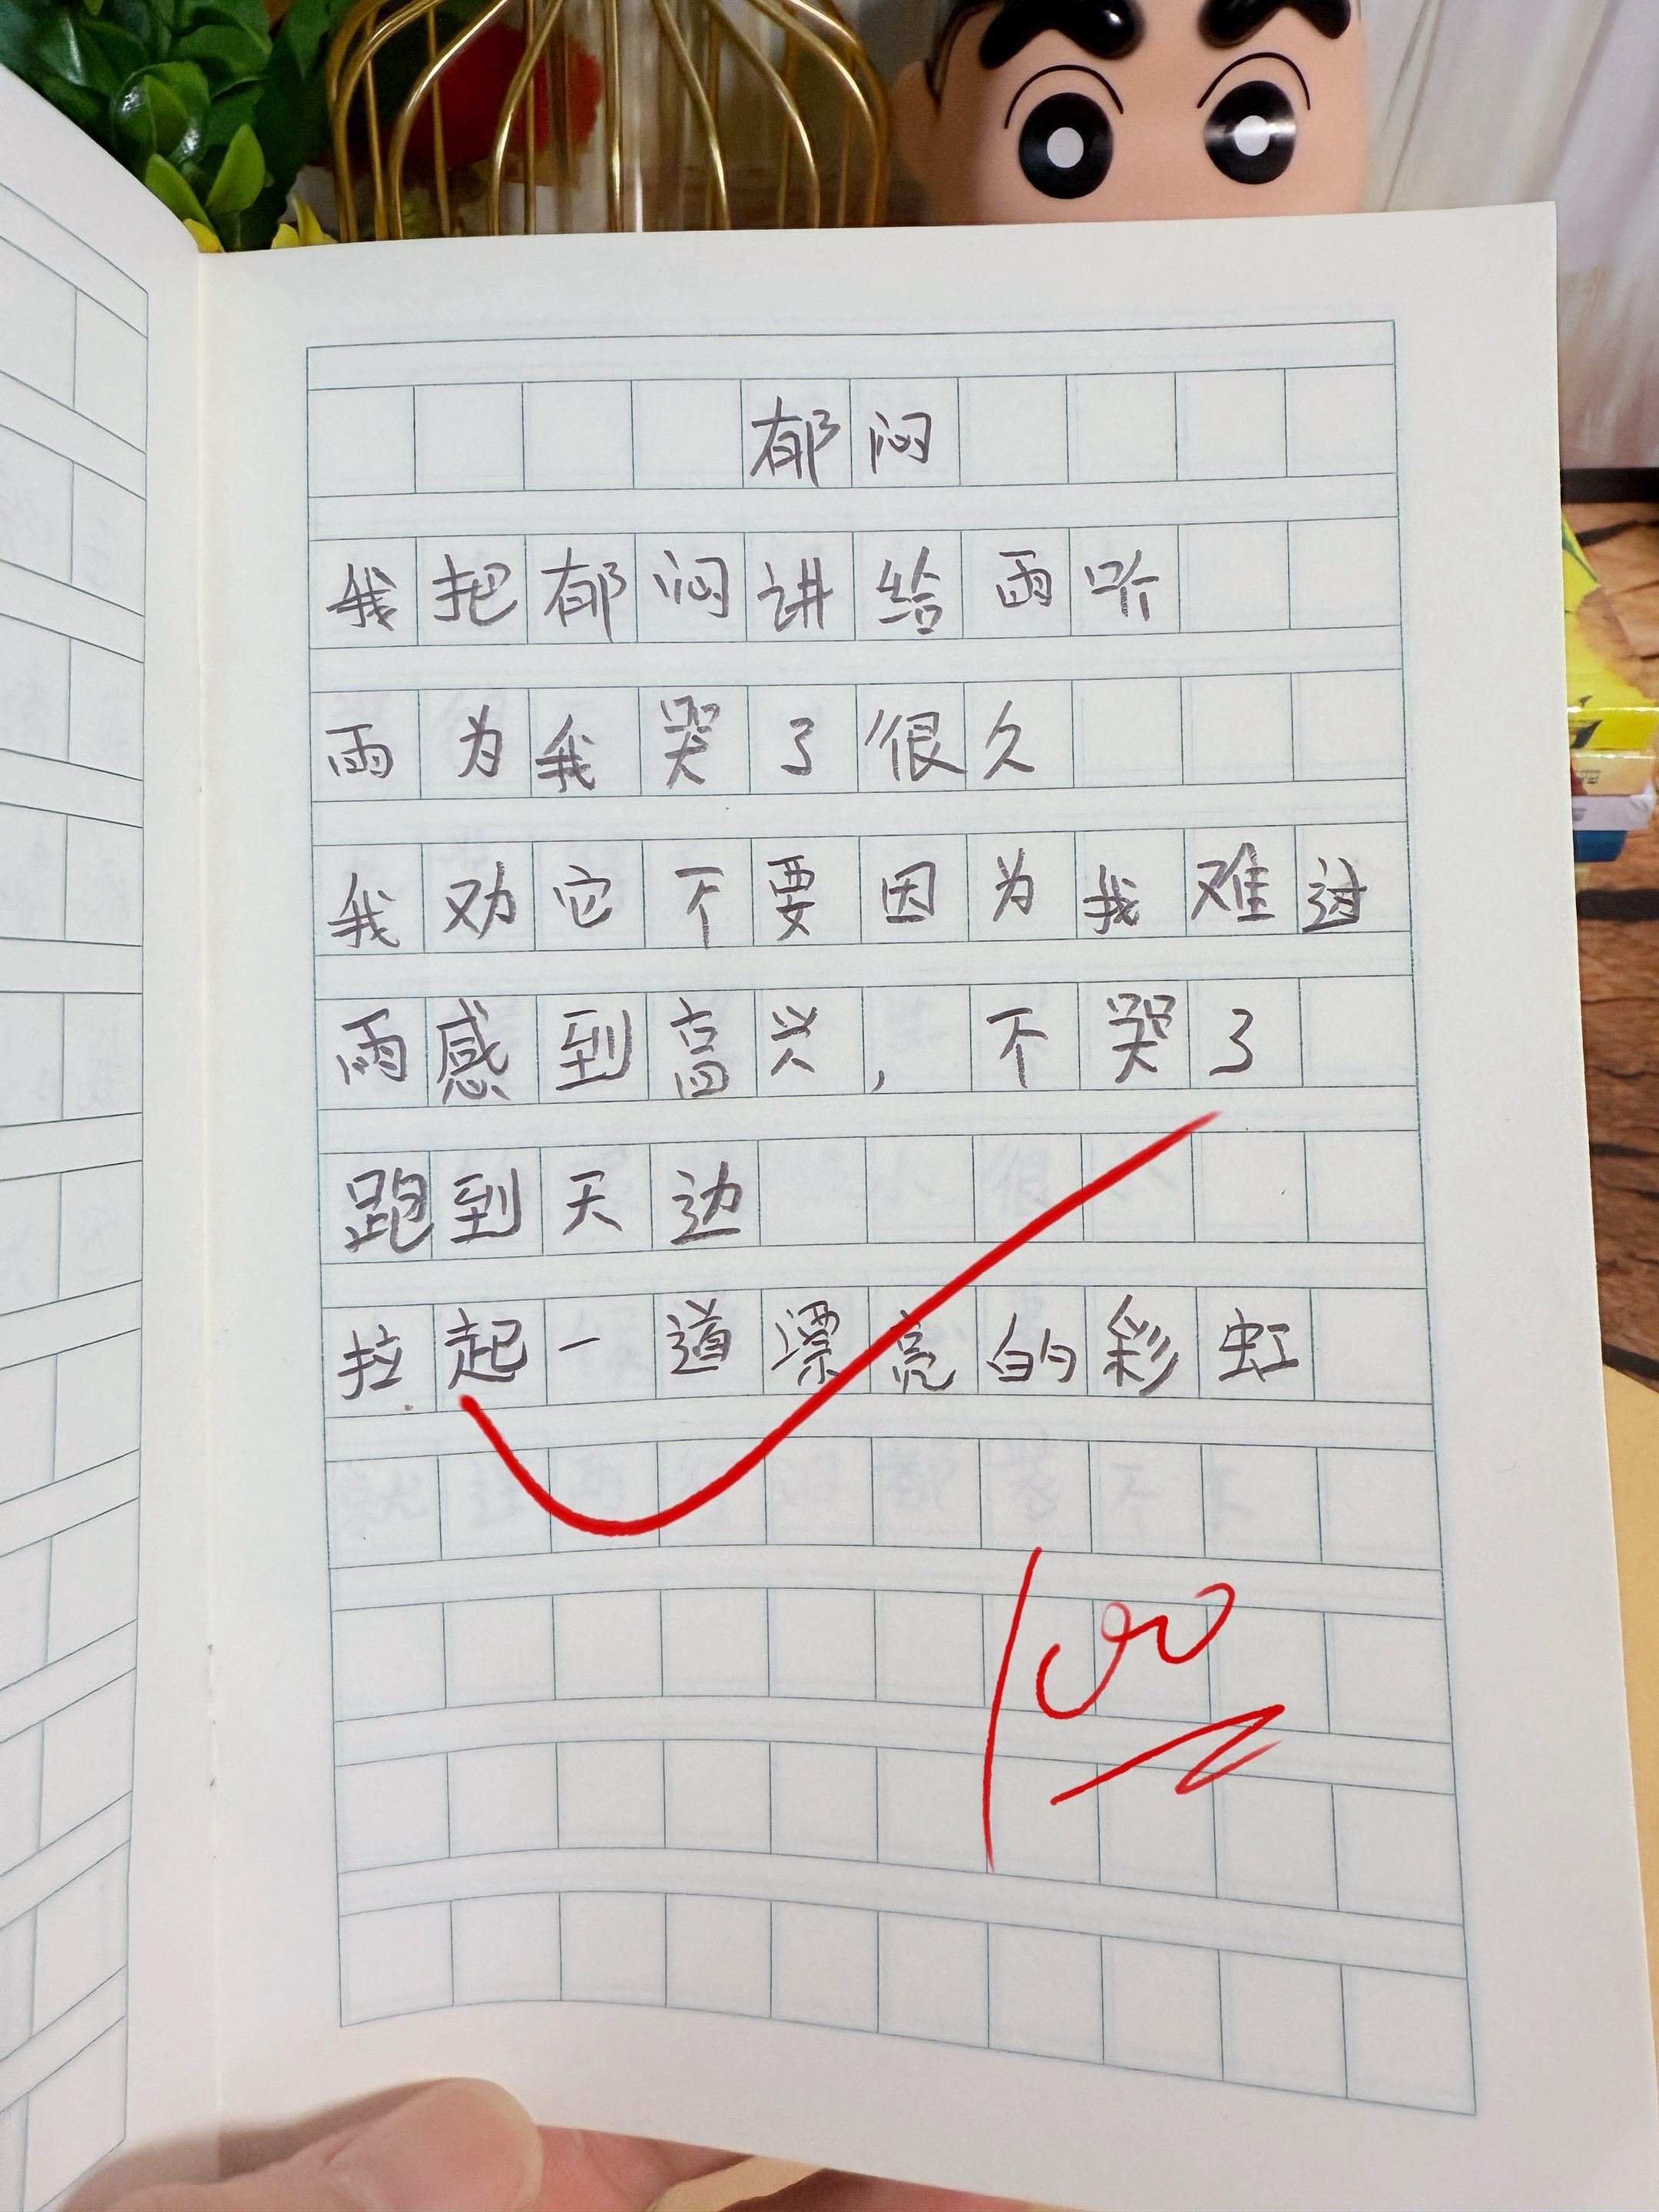 郁闷
我把郁闷讲给雨听
雨为我哭了很久
我劝它不要因为我难过
雨感到高兴，不哭了
跑到天边
拉起一道漂亮的彩虹
100